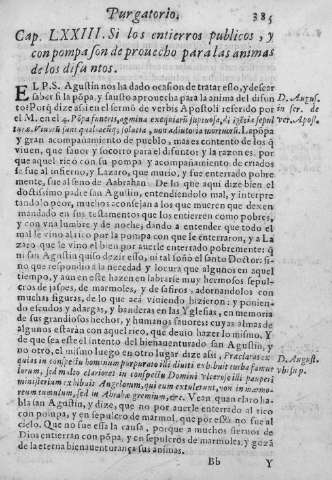 Purgatorio. 385
Cap. LXXIII. Si los entierros publicos, y
con pompa son de prouecho para las animas
de los difuntos.
EL P. S. Agustin nos ha dado ocasion de tratar esto, y dessear
saber si la põpa, y fausto aprouecha para la anima del difun
to: Porq̃ dize assi en el sermõ de verbis Apostoli referido por
el M. en el 4. Põpa funeris, agmina exequiarũ
D. Augus.
in ser. de
ver. Apos-
y gran acompañamiento de pueblo, mas es contento de los q̃
viuen, que fauor y socorro para el difunto: y la razon es, por
que aquel rico con su pompa y acompañamiento de criados
se fue al infierno, y Lazaro, que murio, y fue enterrado pobre
mente, fue al seno de Aabrahan. De lo que aqui dize bien el
doctissimo padre san Agustin, entendiendolo mal, y interpre
tandolo peor, muchos aconsejan a los que mueren que dexen
mandado en sus testamentos que los entierren como pobres,
y con vna lumbre y de noche, dando a entender que todo el
mal le vino al rico por la pompa con que le enterraron, y a La
zaro que le vino el bien por auerle enterrado pobremente: q̃
ni san Agustin quiso dezir esto, ni tal soñò el santo Doctor: si-
no que respondio à la necedad y locura que algunos en aquel
tiempo, y aun en este hazen en labrarse muy hermosos sepul-
cros de jaspes, de marmoles, y de safiros, adornandolos con
muchas figuras, de lo que acà viuiendo hizieron: y ponien-
do escudos y adargas, y banderas en las Yglesias, en memoria
de sus grandiosos hechos, y humanos fauores: cuyas almas de
algunos estaràn con aquel rico, que deuio hazer lo mismo. Y
de que sea este el intento del bienauenturado san Agustin, y
no otro, el mismo luego en otro lugar dize assi, Præclaras ex
quias in conspectu hominum purpurato illi diuiti exhibuit turba famu
lorum, sed multo clariores in conspectu Domini vlceroso illi pauperi
ministerium exhibuit Angelorum, qui eum extulerunt, non in marmo-
reum tumulum, sed in Abrahæ gremium, &c. Vean quan claro ha-
D. August.
vbi sup.
bla san Agustin, y dize, que no por auerle enterrado al rico
con pompa, y en sepulcro de marmol, que por esso no fue al
cielo. Que no fue essa la causa, porque a muchos siervos de
Dios entierran con põpa, y en sepulcros de marmoles, y gozã
de la eterna bienauenturança sus animas.
Bb Y